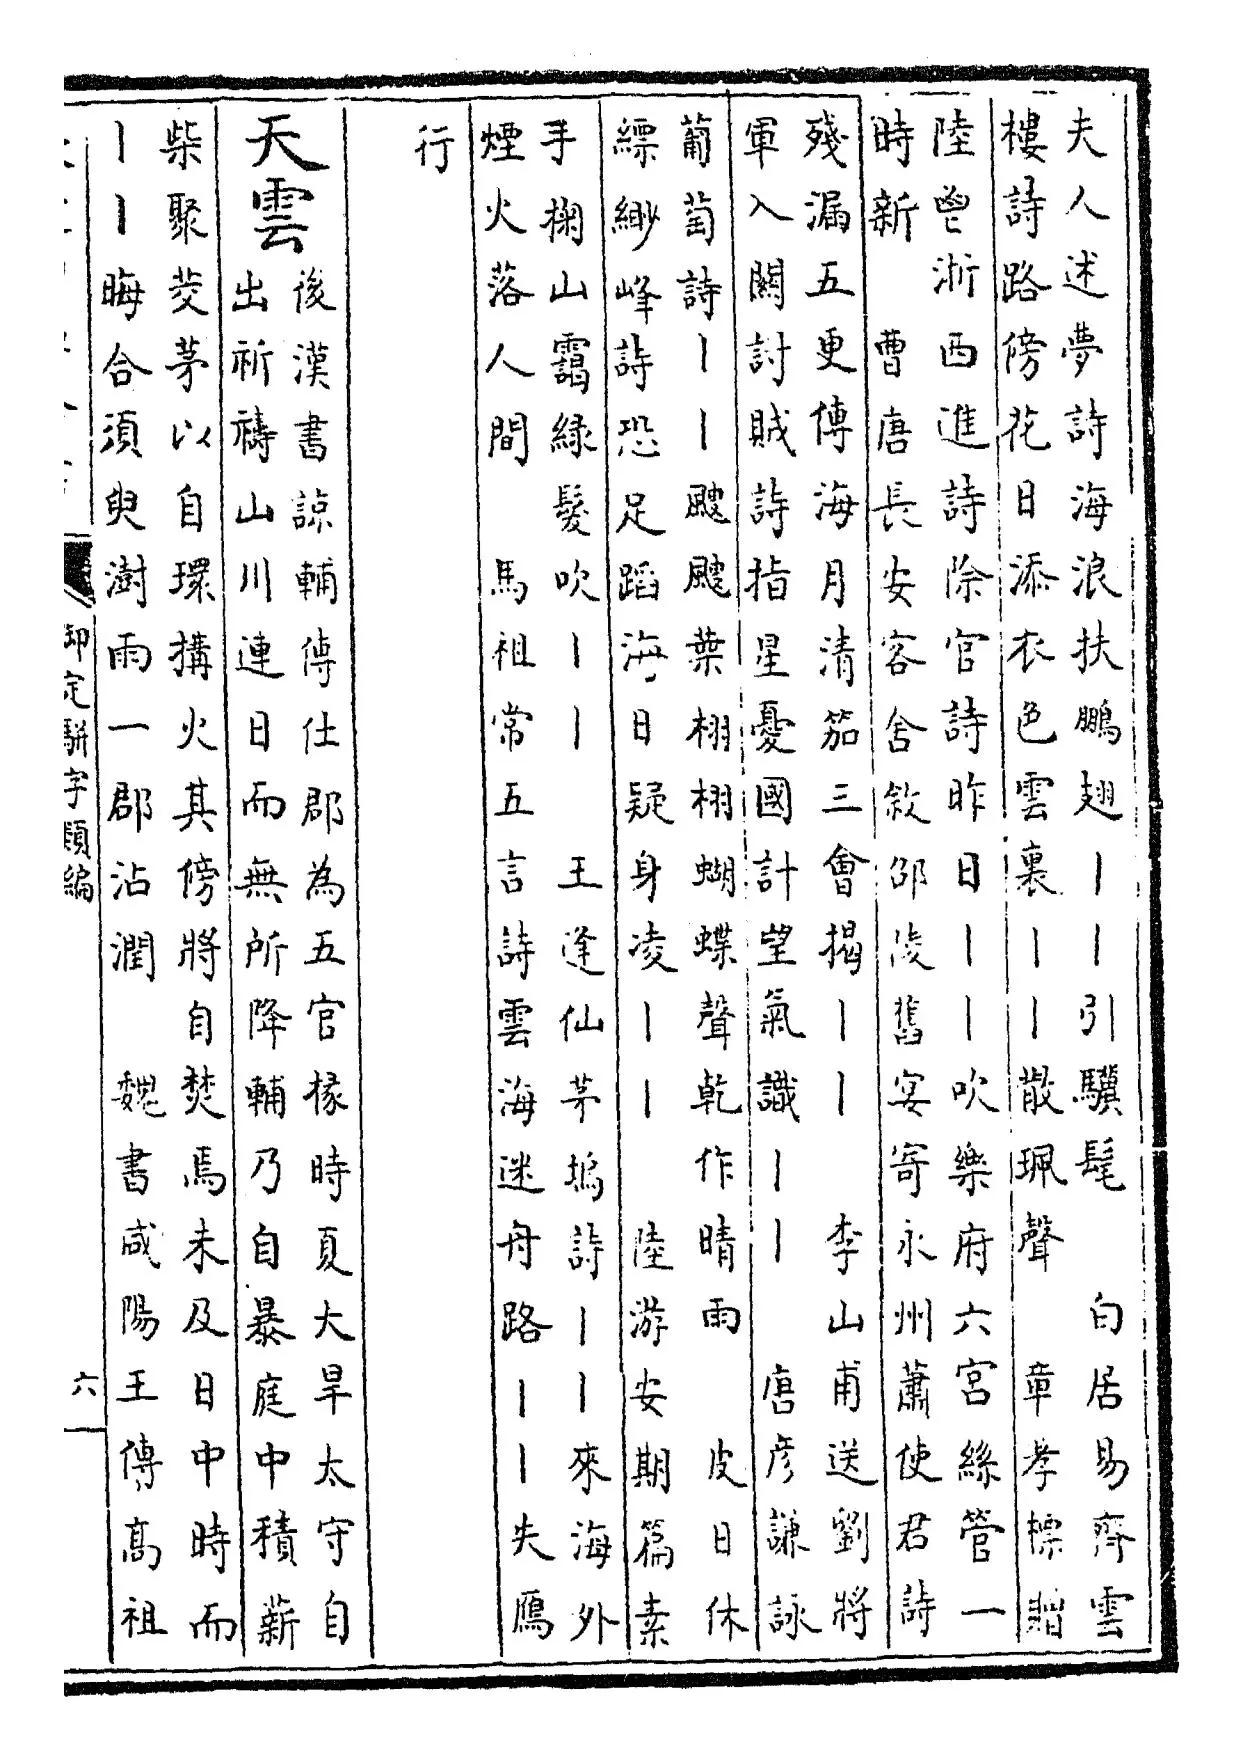 夫人述夢詩海浪扶鵬翅丨丨引驥髦　白居易齊雲
樓詩路傍花日添衣色雲裏丨丨散珮聲　章孝標贈
陸鬯浙西進詩除官詩昨日丨丨吹樂府六宮絲管一
時新　曹唐長安客舍敘邵陵舊宴寄永州蕭使君詩
殘漏五更傳海月清笳三會揭丨丨　李山甫送劉將
軍入關討賊詩指星憂國計望氣識丨丨　唐彥謙詠
葡萄詩丨丨颼颼葉栩栩蝴蝶聲乾作晴雨　皮日休
縹緲峰詩恐足蹈海日疑身凌丨丨　陸游安期篇素
手掬山靄綠髮吹丨丨　王逢仙茅塢詩丨丨來海外
煙火落人間　馬祖常五言詩雲海迷舟路丨丨失鴈
行
天雲
後漢書諒輔傳仕郡為五官掾時夏大旱太守自
出祈禱山川連日而無所降輔乃自暴庭中積薪
柴聚茭茅以自環搆火其傍將自焚焉未及日中時而
丨丨晦合須臾澍雨一郡沾潤　魏書咸陽王傳高祖
御定駢字類編
六